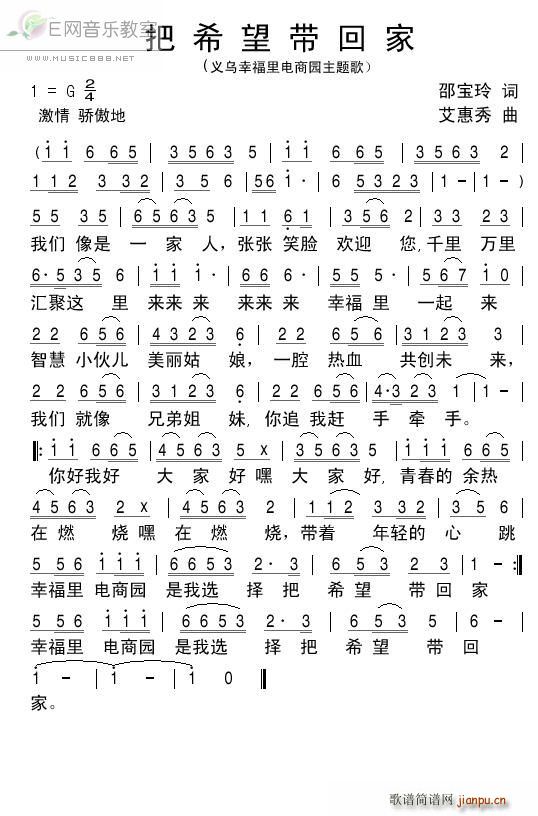 E网音乐教室
WWW.MUSIC888.NET
把希望带回家
(义乌幸福里电商园主题歌)
1 = G 2/4
邵宝玲 词
激情 骄傲地
艾惠秀 曲
( i i 6 65 | 3563 5 | i i 6 65 | 3563 2 |
112 332 | 3235 | 56i i· | 6 5323 | 1 - | 1 - )
55 35 | 65635 | 11 61 | 356 2 | 33 23 |
我们 像是 一 家 人,张张 笑脸 欢迎 您,千里 万里
6·535 6 | i i i· | 66 6· | 3535 | 5567 | i0 |
汇聚这 里 来来 来 来来 来 幸福 里 一起 来
22 656 | 4323 6 | 22 656 | 3123 3 |
智慧 小伙儿 美丽姑 娘,一腔 热血 共创未 来,
22 656 | 4323 6 | 22 656 | 4·323 | 1 | 1 - |
我们 就像 兄弟姐 妹,你追 我赶 手 牵 手。
‖: i i 665 | 4563 5 x | 4563 5 | i i 665 |
你好我好 大 家 好嘿 大 家 好,青春的 余热
4563 2 x | 4563 2 | 112 332 | 35 |
在 燃 烧嘿 在 燃 烧,带着 年轻的 心 跳
5 56 i i i | 6653 | 2· 3 | 653 | 2·3 | 1 - :‖
幸福里 电商园 是我选 择把 希望 带回 家
5 56 | i i i | 6653 | 2· 3 | 653 | 2·3 |
幸福里 电商园 是我选 择把 希望 带 回
i - | i - | i - | i 0 ‖
家。
歌谱简谱网
jianpu.cn